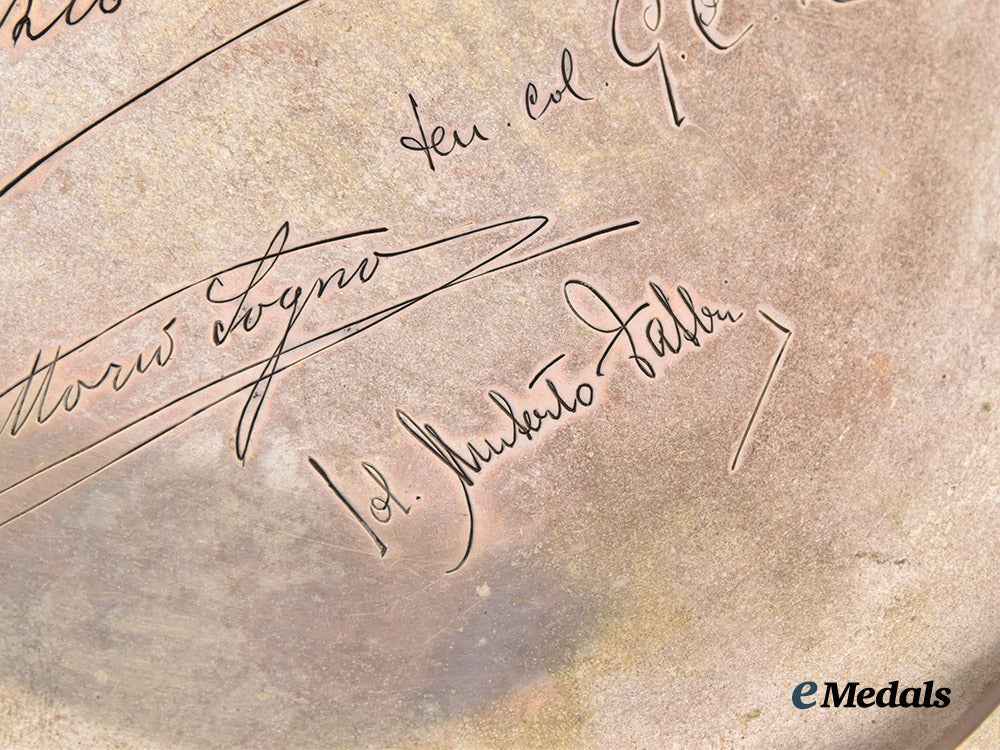 ten. col. G.
ttorio Sogno
Col. Umberto Fabbri
eMedals